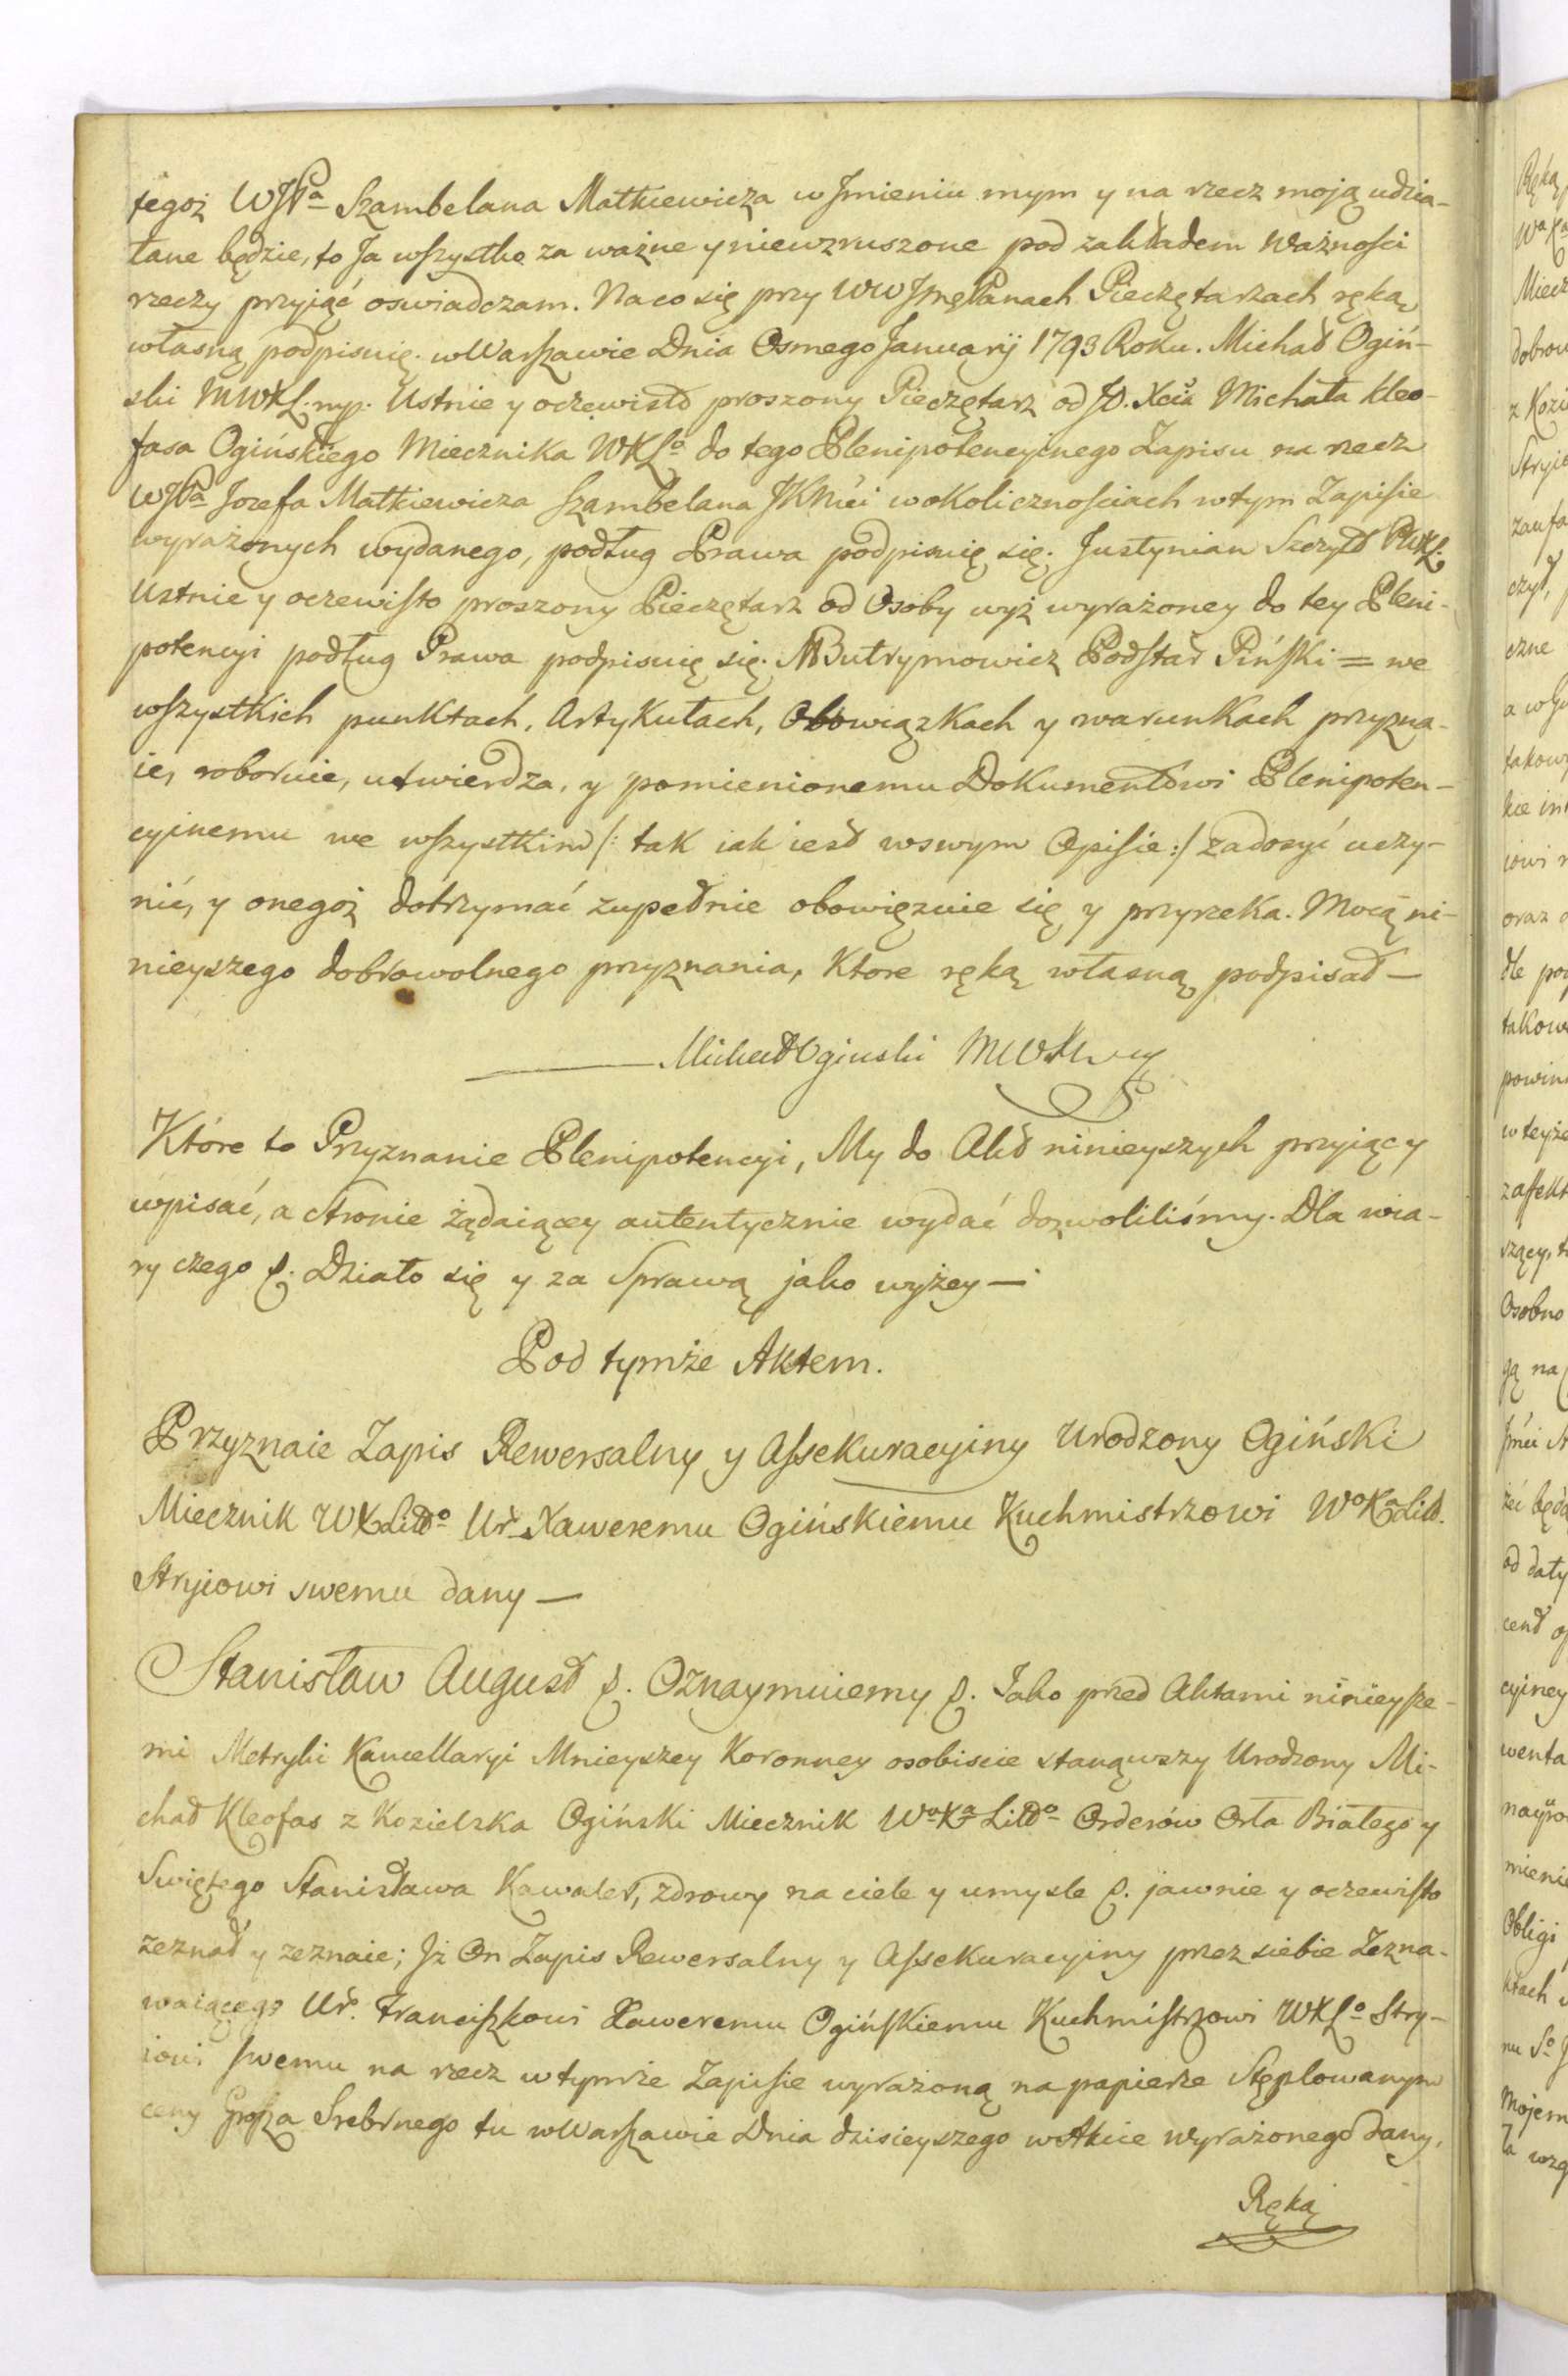 tegoż WJPa Szambelana Matkiewicza w Jmieniu mym y na rzecz moją udzia-
łane będzie, to Ja wszystko za ważne y niewzruszone pod zakładem Ważności
rzeczy przyjąć oswiadczam. Na co się przy WW Panach Pieczętarzach ręką
własną podpisuię. w Warszawie Dnia Osmego Januarij 1793 Roku. Michał Ogiń-
ski MWXL. mp. Ustnie y oczewisto proszony Pieczętarz od JO. Xcia Michała Kleo-
fasa Ogińskiego Miecznika WXLo do tego Plenipotencyinego Zapisu na rzecz
WJPa Jozefa Matkiewicza Szambelana JKMci w okolicznościach w tym Zapisie
wyrażonych wydanego, podług Prawa podpisuię się. Justynian Szczytt PWXL.
Ustnie y oczewisto proszony Pieczętarz od Osoby wyż wyrażoney do tey Pleni-
potencyi podług Prawa podpisuię się. MButrymowicz Podstar Piński = we
wszystkich punktach, Artykułach, Obowiązkach y warunkach przyzna-
ie, roboruie, utwierdza, y pomienionemu Dokumentowi Plenipoten-
cyinemu we wszystkim /: tak iak iest w swym Opisie :/ zadosyć uczy-
nić, y onegoż dotrzymać zupełnie obowięzuie się y przyrzeka. Mocą ni-
nieyszego dobrowolnego przyznania, Ktore ręką własną podpisał —
Michał Oginski
Które to Przyznanie Plenipotencyi, My do Akt ninieyszych przyiąć y
wpisać, a stronie żądaiącey autentycznie wydać dozwoliliśmy. Dla wia-
ry czego &. Działo się y za Sprawą jako wyżey —
Pod tymże Aktem.
Przyznaie Zapis Rewersalny y Assekuracyiny Urodzony Ogiński
Miecznik WXLitto Ur. Xaweremu Ogińskiemu Kuchmistrzowi WoXa Litt.
Stryiowi swemu dany —
Stanisław August &. Oznaymuiemy &. Jako przed Aktami ninieysze-
mi Metryki Kancellaryi Mnieyszey Koronney osobiscie stanąwszy Urodzony Mi-
chał Kleofas z Kozielska Ogiński Miecznik WoXa Litto Orderów Orła Białego y
Swiętego Stanisława Kawaler, zdrowy na ciele y umysle &. jawnie y oczewisto
zeznał y zeznaie; Jż On Zapis Rewersalny y Assekuracyiny przez siebie Zezna-
waiącego Ur. Franciszkowi Xaweremu Ogińskiemu Kuchmistrzowi WXLo Stry-
iowi swemu na rzecz w tymże Zapisie wyrażoną na papierze Stęplowanym
ceny Grosza Srebrnego tu w Warszawie Dnia dzisieyszego w Akcie wyrażonego dany,
Ręką